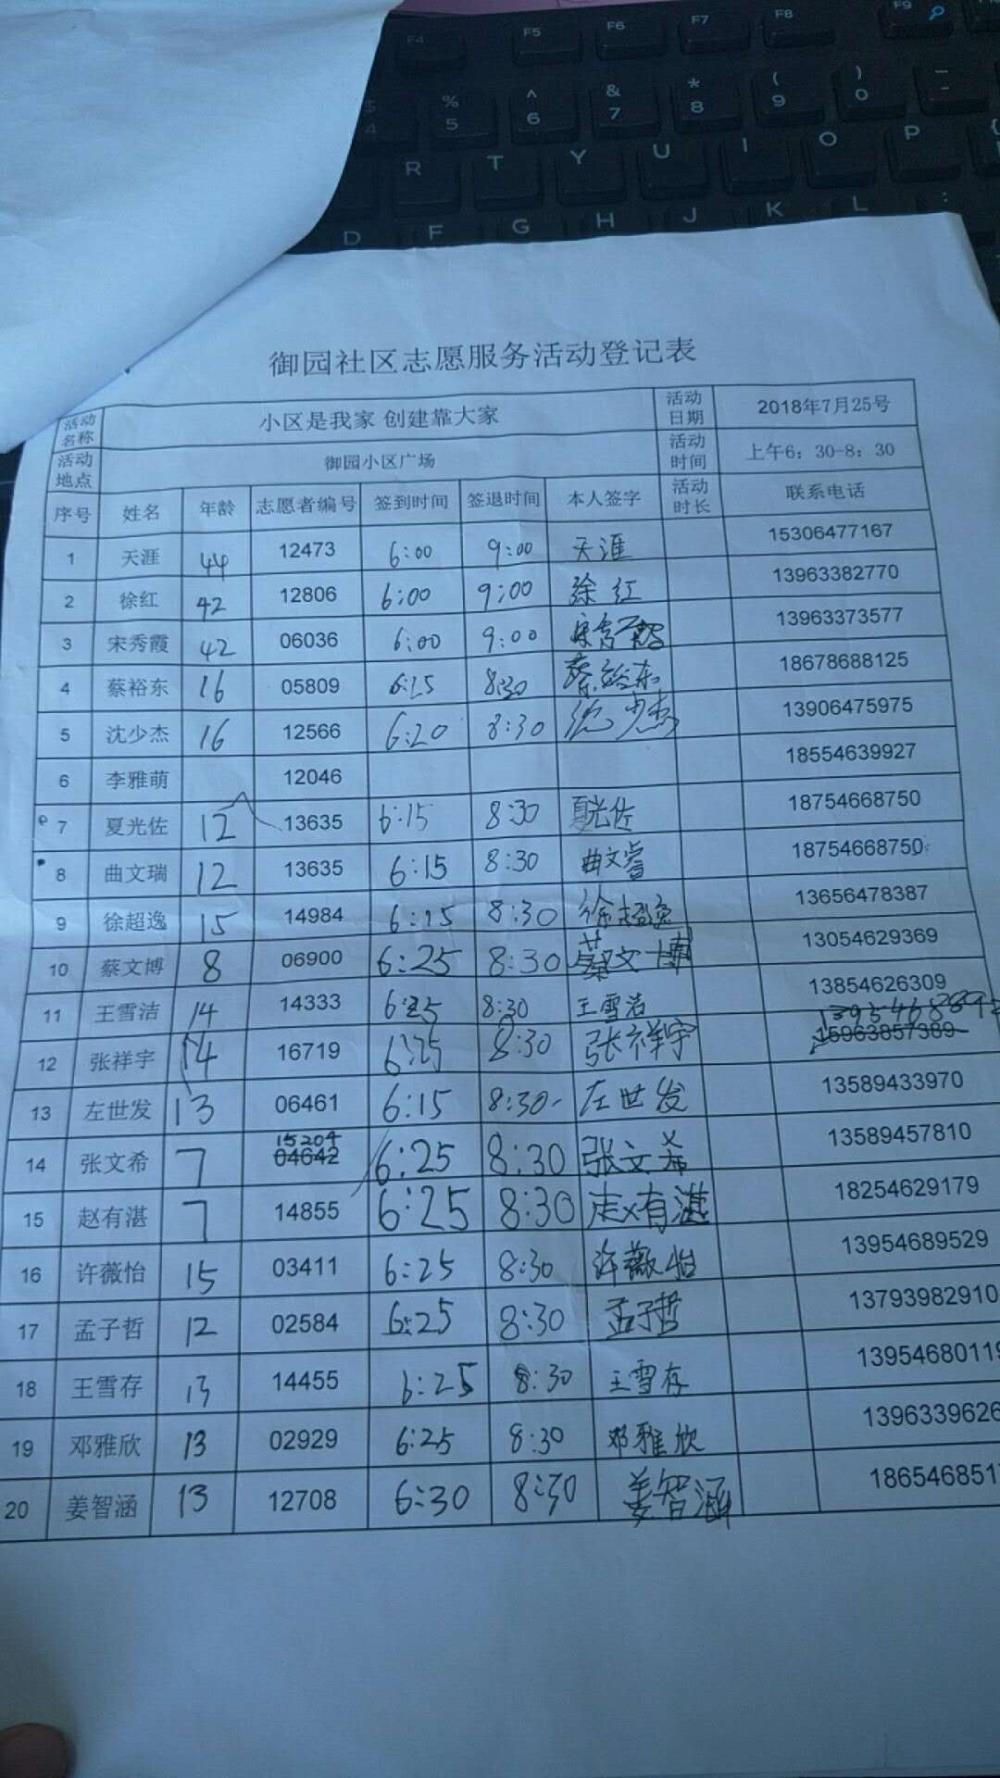 F4 F5 F6 F7 F8 F9
$ 4 % 5 ^ 6 & 7 * 8 ( 9 ) 0 -
R T Y U I O P
D F G H J K L :
御园社区志愿服务活动登记表
活动名称 小区是我家 创建靠大家 活动日期 2018年7月25号
活动地点 御园小区广场 活动时间 上午6：30-8：30
序号 姓名 年龄 志愿者编号 签到时间 签退时间 本人签字 活动时长 联系电话
1 天涯 44 12473 6:00 9:00 天涯 15306477167
2 徐红 42 12806 6:00 9:00 徐红 13963382770
3 宋秀霞 42 06036 6:00 9:00 13963373577
4 蔡裕东 16 05809 6:25 8:30 蔡裕东 18678688125
5 沈少杰 16 12566 6:20 8:30 沈少杰 13906475975
6 李雅萌 12046 18554639927
7 夏光佐 12 13635 6:15 8:30 夏光佐 18754668750
8 曲文瑞 12 13635 6:15 8:30 曲文睿 18754668750
9 徐超逸 15 14984 6:15 8:30 徐超逸 13656478387
10 蔡文博 8 06900 6:25 8:30 蔡文博 13054629369
11 王雪洁 14 14333 6:25 8:30 王雪洁 13854626309
12 张祥宇 14 16719 6:25 8:30 张祥宇 15963857389
13 左世发 13 06461 6:15 8:30 左世发 13589433970
14 张文希 7 15204 04642 6:25 8:30 张文希 13589457810
15 赵有湛 7 14855 6:25 8:30 赵有湛 18254629179
16 许薇怡 15 03411 6:25 8:30 许薇怡 13954689529
17 孟子哲 12 02584 6:25 8:30 孟子哲 13793982910
18 王雪存 13 14455 6:25 8:30 王雪存 13954680119
19 邓雅欣 13 02929 6:25 8:30 邓雅欣 1396339626
20 姜智涵 13 12708 6:30 8:30 姜智涵 186546851